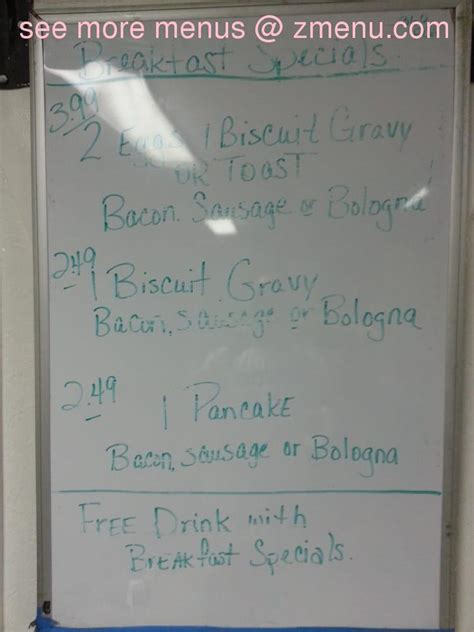 see more menus @ zmenu.com
Breakfast Specials
3.99
2 Eggs 1 Biscuit Gravy
OR TOAST
Bacon. Sausage or Bologna
2.49
1 Biscuit Gravy
Bacon, Sausage or Bologna
2.49
1 PancakE
Bacon, Sausage or Bologna
FREE Drink with
BREAkfast Specials.